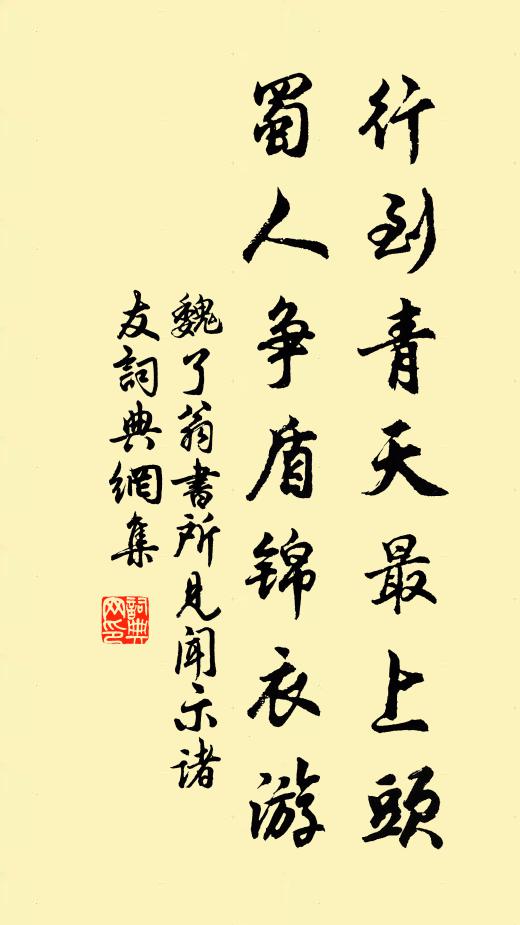 行到青天最上頭
蜀人争盾錦衣游
魏了翁書所見聞示诸
友詞典網集
詞典
网印